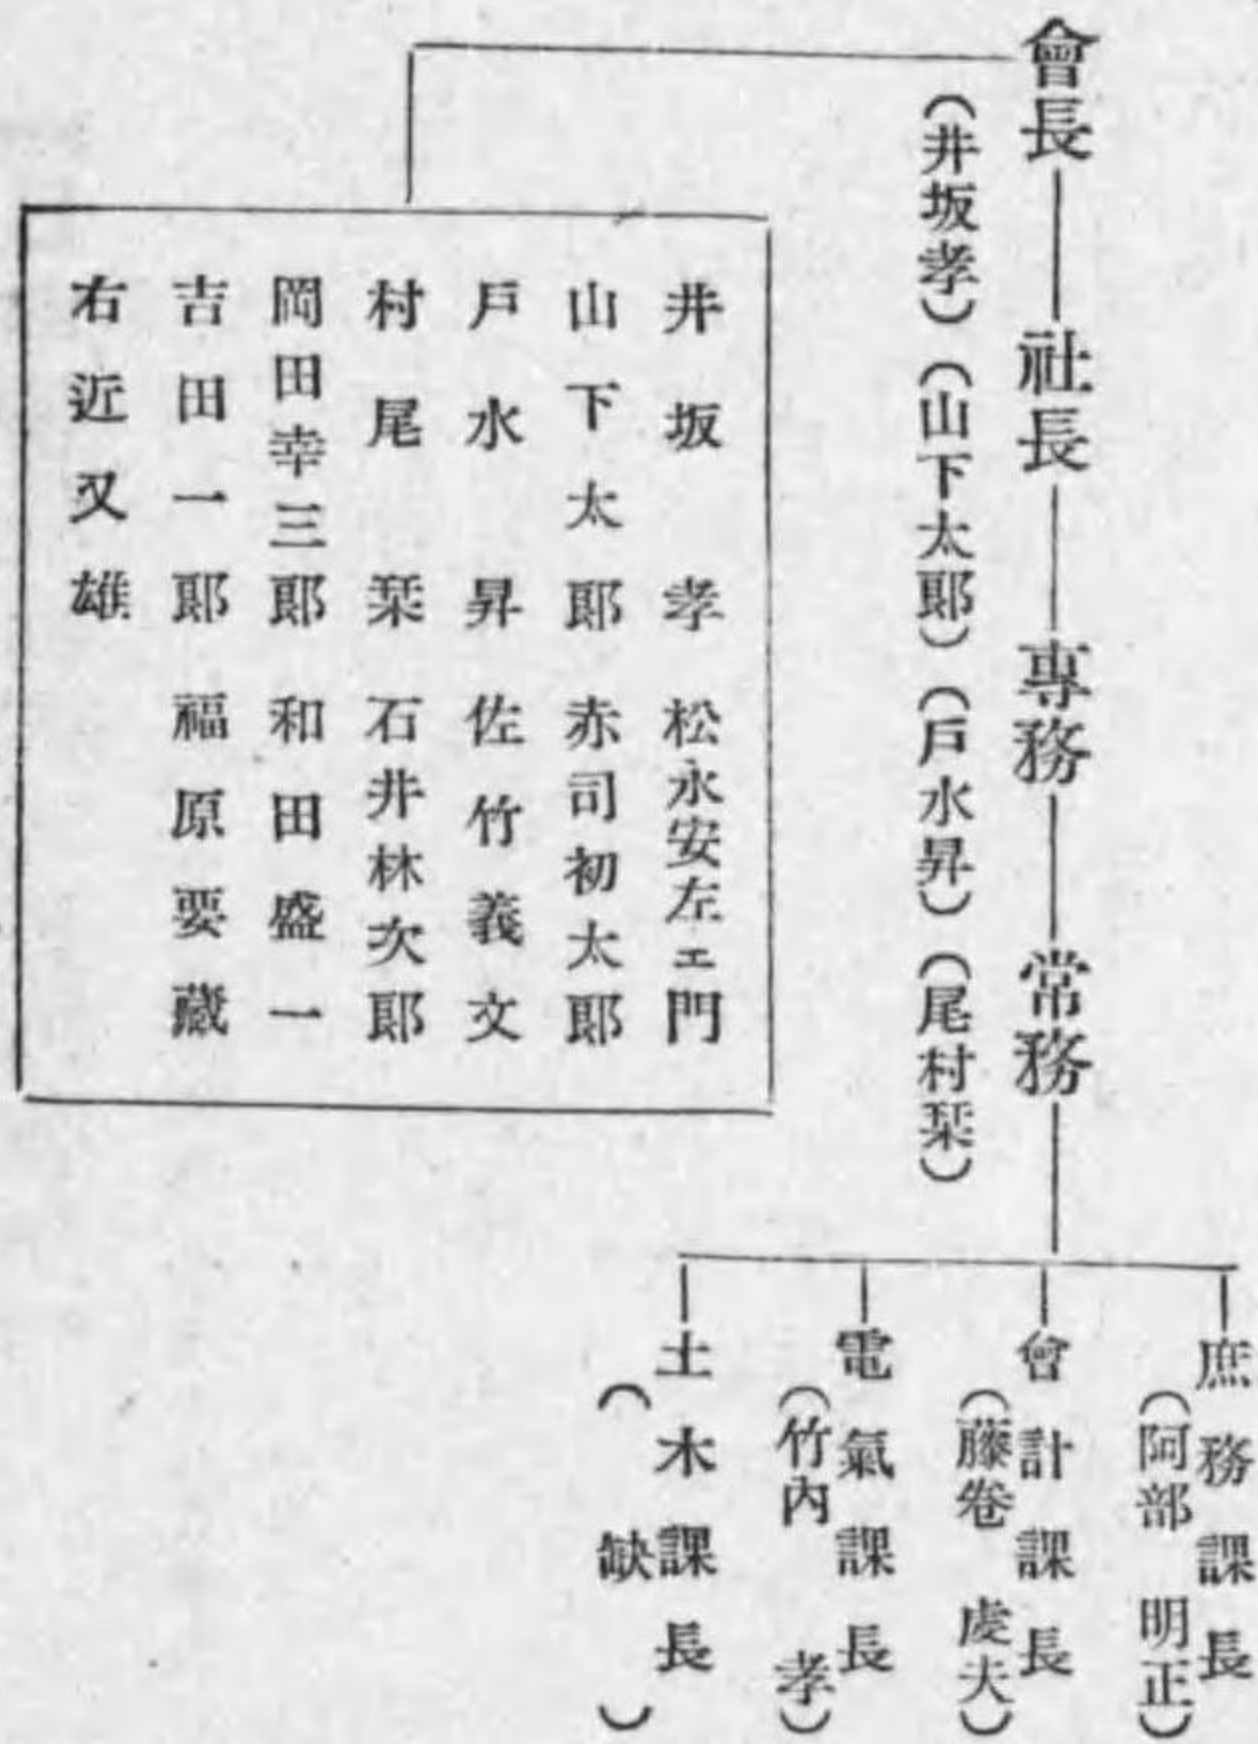 會長―社長―専務―常務
(井坂孝)(山下太郎)(戸水昇)(尾村栞)
庶務課長
(阿部 明正)
會計課長
(藤卷 虔夫)
電氣課長
(竹內 孝)
土木課長
( 缺 )
井坂 孝 松永安左エ門
山下太郎 赤司初太郎
戸水 昇 佐竹義文
村尾 栞 石井林次郎
岡田幸三郎 和田盛一
吉田一郎 福原要藏
右近又雄